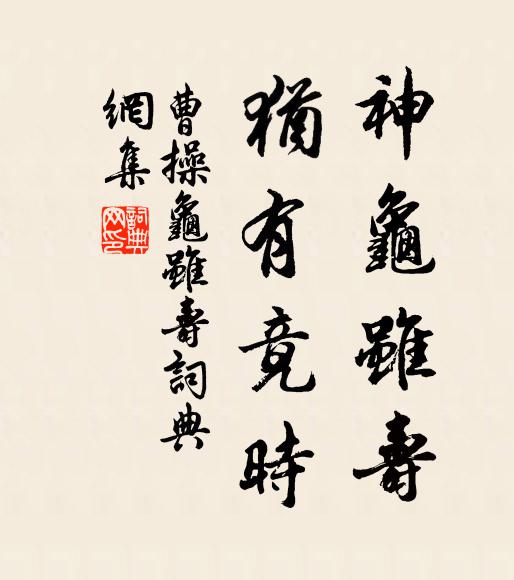 神龜雖壽
猶有竟時
曹操龜雖壽詞典
網集
詞典
网印